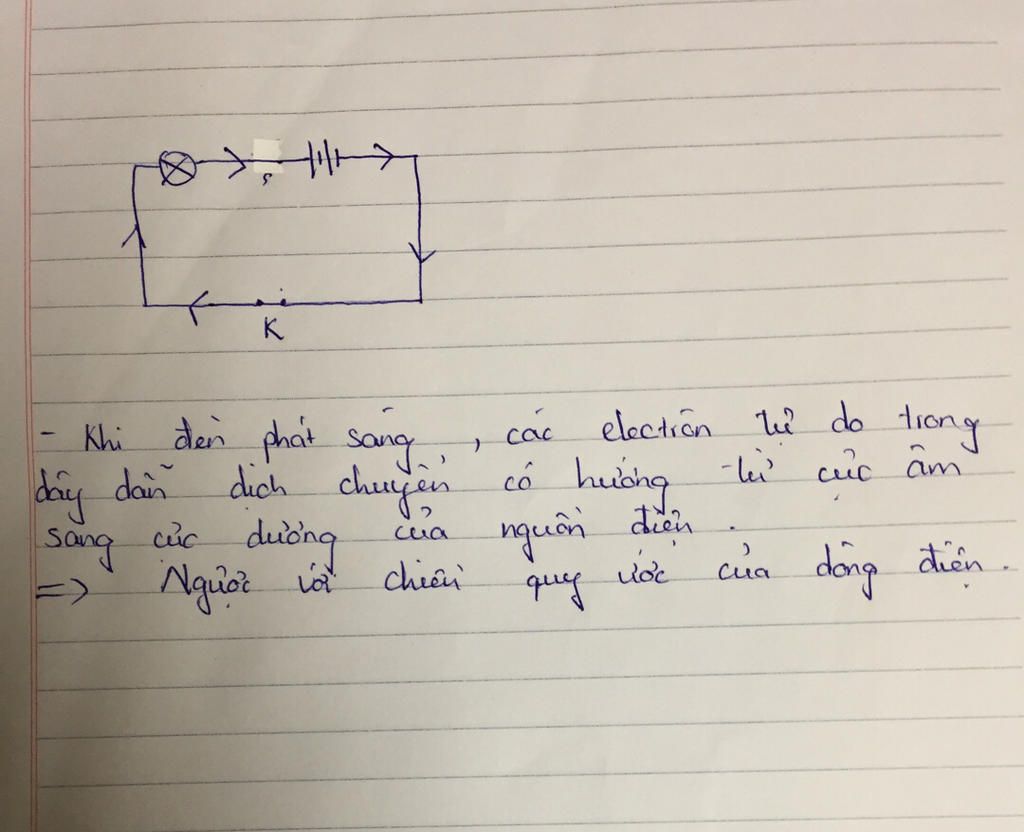 K
- Khi đèn phát sáng, các electrôn tự do trong
dây dẫn dịch chuyển có hướng từ cực âm
sang cực dương của nguồn điện.
=> Ngược với chiều quy ước của dòng điện.